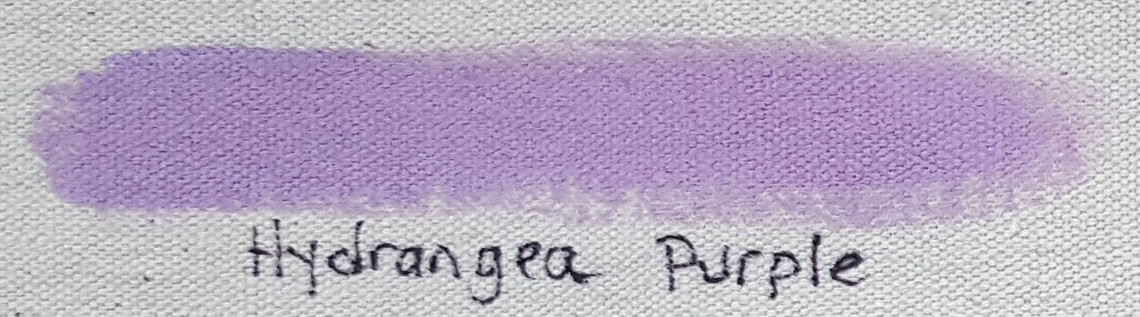 Hydrangea Purple